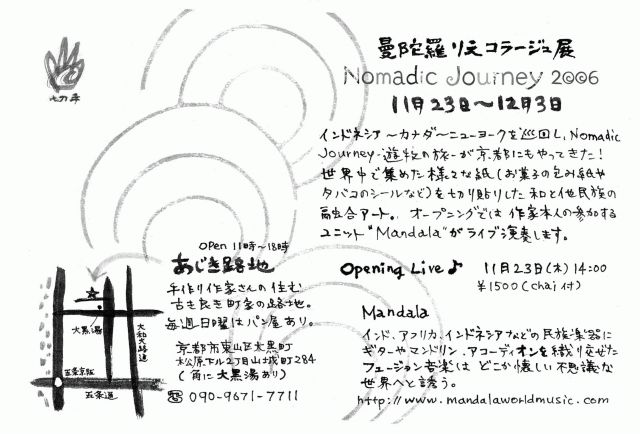 切手
曼陀羅りえコラージュ展
Nomadic Journey 2006
11月23日〜12月3日
インドネシア〜カナダ〜ニューヨークを巡回し、Nomadic
Journey-遊牧の旅-が京都にもやってきた!
世界中で集めた様々な紙(お菓子の包み紙や
タバコのシールなど)を切り貼りした和と他民族の
融合アート。オープニングでは作家本人の参加する
ユニット"Mandala"がライブ演奏します。
OPen 11時〜18時
あじき路地
手作り作家さんの住む
古き良き町家の路地。
毎週日曜はパン屋あり。
京都市東山区大黒町
松原下ル2丁目山城町284
(角に大黒湯あり)
☎ 090-9671-7711
大黒湯
大和大路通
五条京阪
五条通
Opening Live♪ 11月23日(木)14:00
¥1500(chai付)
Mandala
インド、アフリカ、インドネシアなどの民族楽器に
ギターやマンドリン、アコーディオンを織り交ぜた
フュージョン音楽は どこか懐しい不思議な
世界へと誘う。
http://www.mandalaworldmusic.com